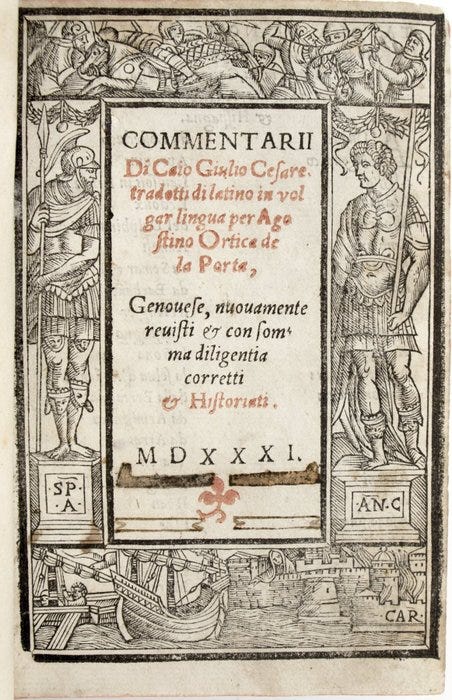 COMMENTARII
Di Caio Giulio Cesare.
tradotti di latino in vol
gar lingua per Ago
stino Ortica de
la Porta,
Genouese, nuouamente
reuisti & con som-
ma diligentia
corretti
& Historiati.
M D X X X I.
SP.
A
AN.C
CAR.